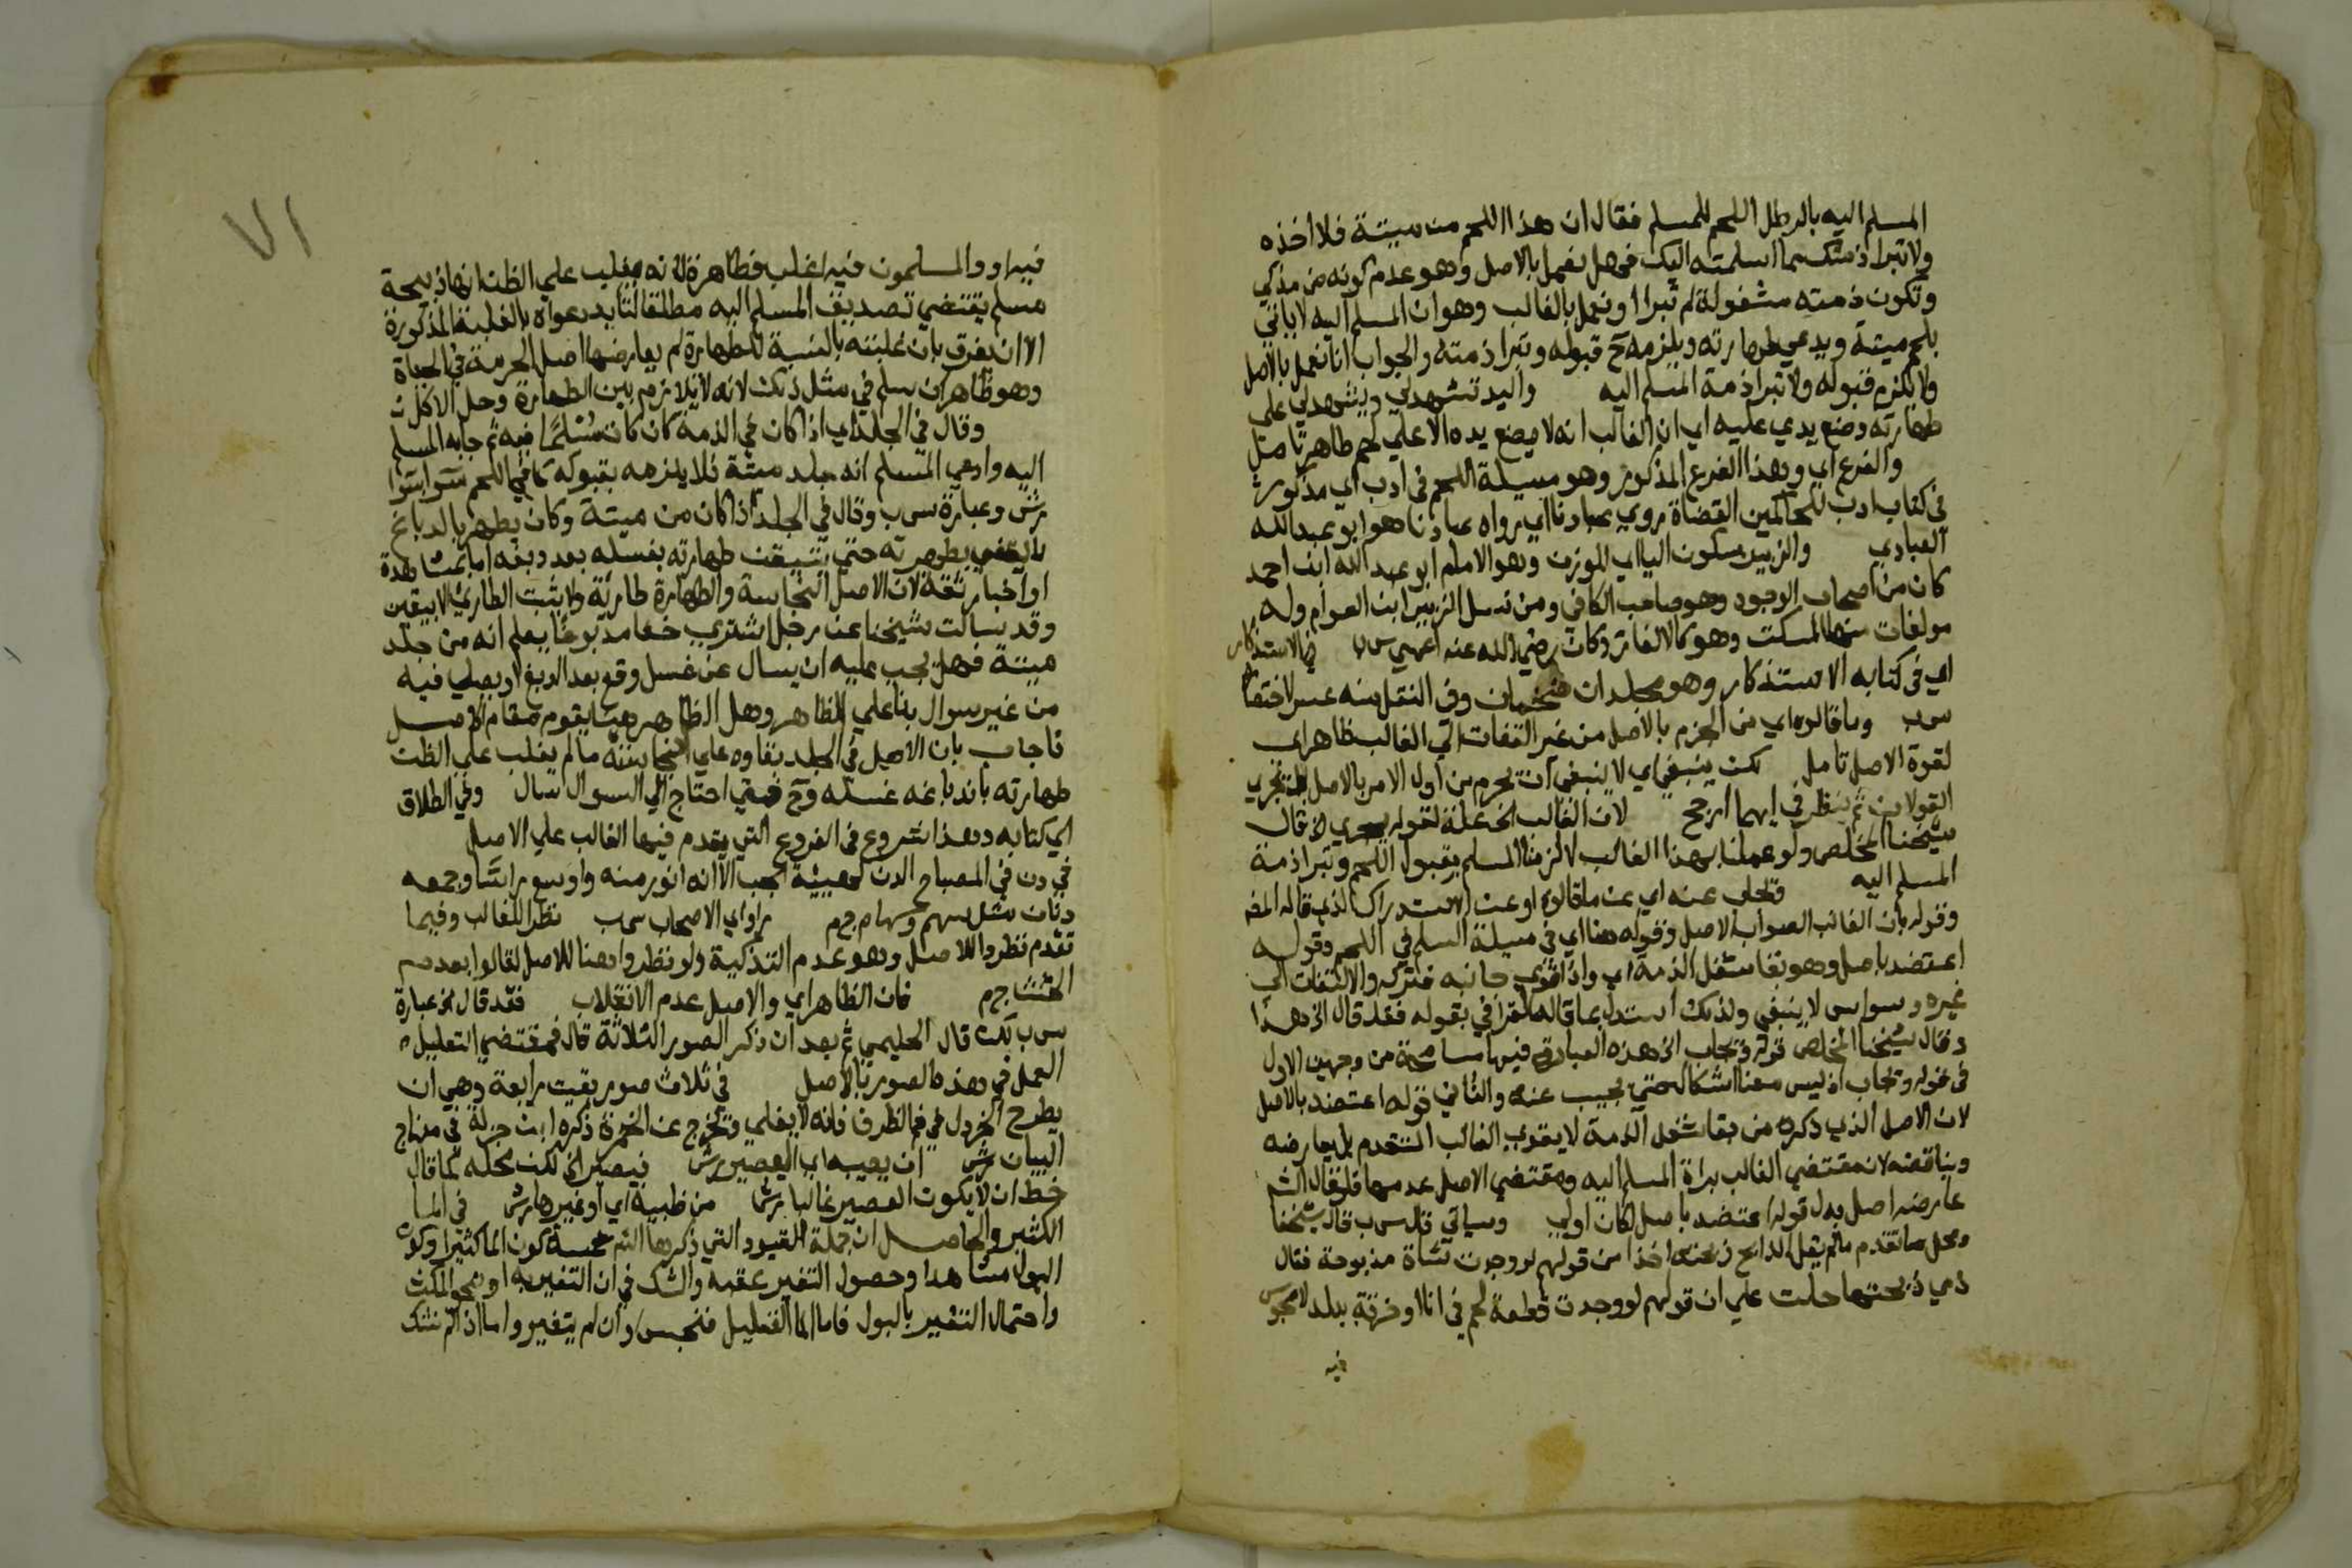 المسلم اليه بالرطل اللحم للمسلم فقال ان هذا اللحم من ميتة فلا اخذه
ولا تبرا ذمتك مما اسلمته اليك فهل نعمل بالاصل وهو عدم كونه من مذكي
وتكون ذمته مشغولة لم تبرا او نعمل بالغالب وهو ان المسلم اليه لا ياتي
بلحم ميتة ويدعي طهارته ويلزمه ح قبوله وتبرا ذمته والجواب انا نعمل بالاصل
ولا يلزم قبوله ولا تبرا ذمة المسلم اليه واليد تشهد لي ويشهد لي على
طهارته وضع يدي عليه اي ان الغالب انه لا يضع يده الا علي لحم طاهر تامل
والفرع اي وهذا الفرع المذكور وهو مسيلة اللحم في ادب اي مذكور
في كتاب ادب للحاكمين القضاة يروي عبادنا اي رواه عبادنا هو ابو عبد الله
العبادي والزبير بسكون اليا اي للوزن وهو الامام ابو عبد الله ابن احمد
كان من اصحاب الوجوه وهو صاحب الكافي ومن نسل الزبير ابن العوام وله
مولفات منها المسكت وهو كالالغاز وكان رضي الله عنه اعمي س ب في الاستذكار
اي في كتابه الاستذكار وهو مجلدان ضخمان وفي النقل منه عسر لاختصا
س ب وما قالوه اي من الجزم بالاصل من غير التفات الي الغالب ظاهر اي
لقوة الاصل تامل لكن ينبغي اي لا ينبغي ان نجزم من اول الامر بالاصل بل نجري
القولان ثم ينظر في ايهما ارجح لان الغالب الخ علة لقوله يجري الخ قال
شيخنا المخلص ولو عملنا بهذا الغالب لالزمنا المسلم بقبول اللحم وتبرا ذمة
المسلم اليه وتجاب عنه اي عن ما قالوه او عن الاستدراك الذي قاله المص
وقوله بان الغالب الصواب الاصل وقوله هنا اي في مسيلة السلم في اللحم وقوله
اعتضد باصل وهو بقا شغل الذمة اي واذا قوي جانبه فتركه والالتفات الي
غيره وسواس لا ينبغي ولذلك استدل بما قاله القرافي بقوله فقد قال الخ هذا
وقال شيخنا المخلص قوله وتجاب الخ هذه العبارة فيها مسامحة من وجهين الاول
في قوله وتجاب اذ ليس معنا اشكال حتي يجيب عنه والثاني قوله اعتضد بالاصل
لان الاصل الذي ذكره من بقا شغل الذمة لا يقوي الغالب المتقدم بل يعارضه
ويناقضه لان مقتضي الغالب براة المسلم اليه ومقتضي الاصل عدمها فلو قال الشم
عارضه اصل بدل قوله اعتضد باصل لكان اولي وسياتي قال س ب قال شيخنا
ومحل ما تقدم ما لم يقل الذابح ذبحته اخذا من قولهم لو وجدت شاة مذبوحة فقال
ذمي ذبحتها حلت علي ان قولهم لو وجدت قطعة لحم في انا او خرقة ببلد لا مجوس
فيه
٧١
فيه او والمسلمون فيه اغلب فطاهرة لانه يغلب علي الظن انها ذبيحة
مسلم يقتضي تصديق المسلم اليه مطلقا لتايد دعواه بالغلبة المذكورة
الا ان يفرق بان غلبته بالنسبة للطهارة لم يعارضها اصل الحرمة في الحياة
وهو ظاهر ان سلم في مثل ذلك لانه لا تلازم بين الطهارة وحل الاكل ن
وقال في الجلد اي اذا كان في الذمة كان كان مسلما فيه ثم جابه المسلم
اليه وادعي المسلم انه جلد ميتة فلا يلزمه بقبوله كما في اللحم سوا بسوا
برش وعبارة س ب وقال في الجلد اذا كان من ميتة وكان يطهر بالدباغ
لا يقضي بطهريته حتي نتيقن طهارته بغسله بعد دبغه اما بمشاهدة
او اخبار ثقة لان الاصل النجاسة والطهارة طارئة ولا يثبت الطارئ الا بيقين
وقد سالت شيخنا عن رجل اشتري خفا مدبوغا يعلم انه من جلد
ميتة فهل يجب عليه ان يسال عن غسل وقع بعد الدبغ او يصلي فيه
من غير سوال بنا علي الظاهر وهل الظاهر هنا يقوم مقام الاصل
فاجاب بان الاصل في الجلد بقاوه علي النجاسة ما لم يغلب علي الظن
طهارته باند باغه غسله وح فمتي احتاج الي السوال سال وفي الطلاق
اي كتابه وهذا شروع في الفروع التي يقدم فيها الغالب علي الاصل
في دن في المصباح الدن كهيئة الحب الا انه اطول منه واوسع راسا وجمعه
دنان مثل سهم وسهام ج م راو اي الاصحاب س ب نظرا للغالب وفيما
تقدم نظروا للاصل وهو عدم التذكية ولو نظروا هنا للاصل لقالوا بعدم
الحنث ج م فان الظاهر اي والاصل عدم الانقلاب فقد قال الخ عبارة
س ب لكن قال الحليمي ثم بعد ان ذكر الصور الثلاثة قال فمقتضي التعليل
العمل في هذه الصورة بالاصل في ثلاث صور بقيت رابعة وهي ان
يطرح الخردل في فم الظرف فانه لا يغلي وتخرج عن الخمرة ذكره ابن جزلة في منهاج
البيان برش ان يصيبه اي العصير برش فيصير الخ لكن محله كما قال
خط ان لا يكون العصير غالبا برش من ظبية اي او غيرها برش في الما
الكثير والحاصل ان جملة القيود التي ذكرها الشم خمسة كون الما كثيرا وكون
البول مشاهدا وحصول التغير عقبه والشك في ان التغير به او بنحو المكث
واحتمال التغير بالبول فاما الما القليل فنجس وان لم يتغير واما اذا لم نشك